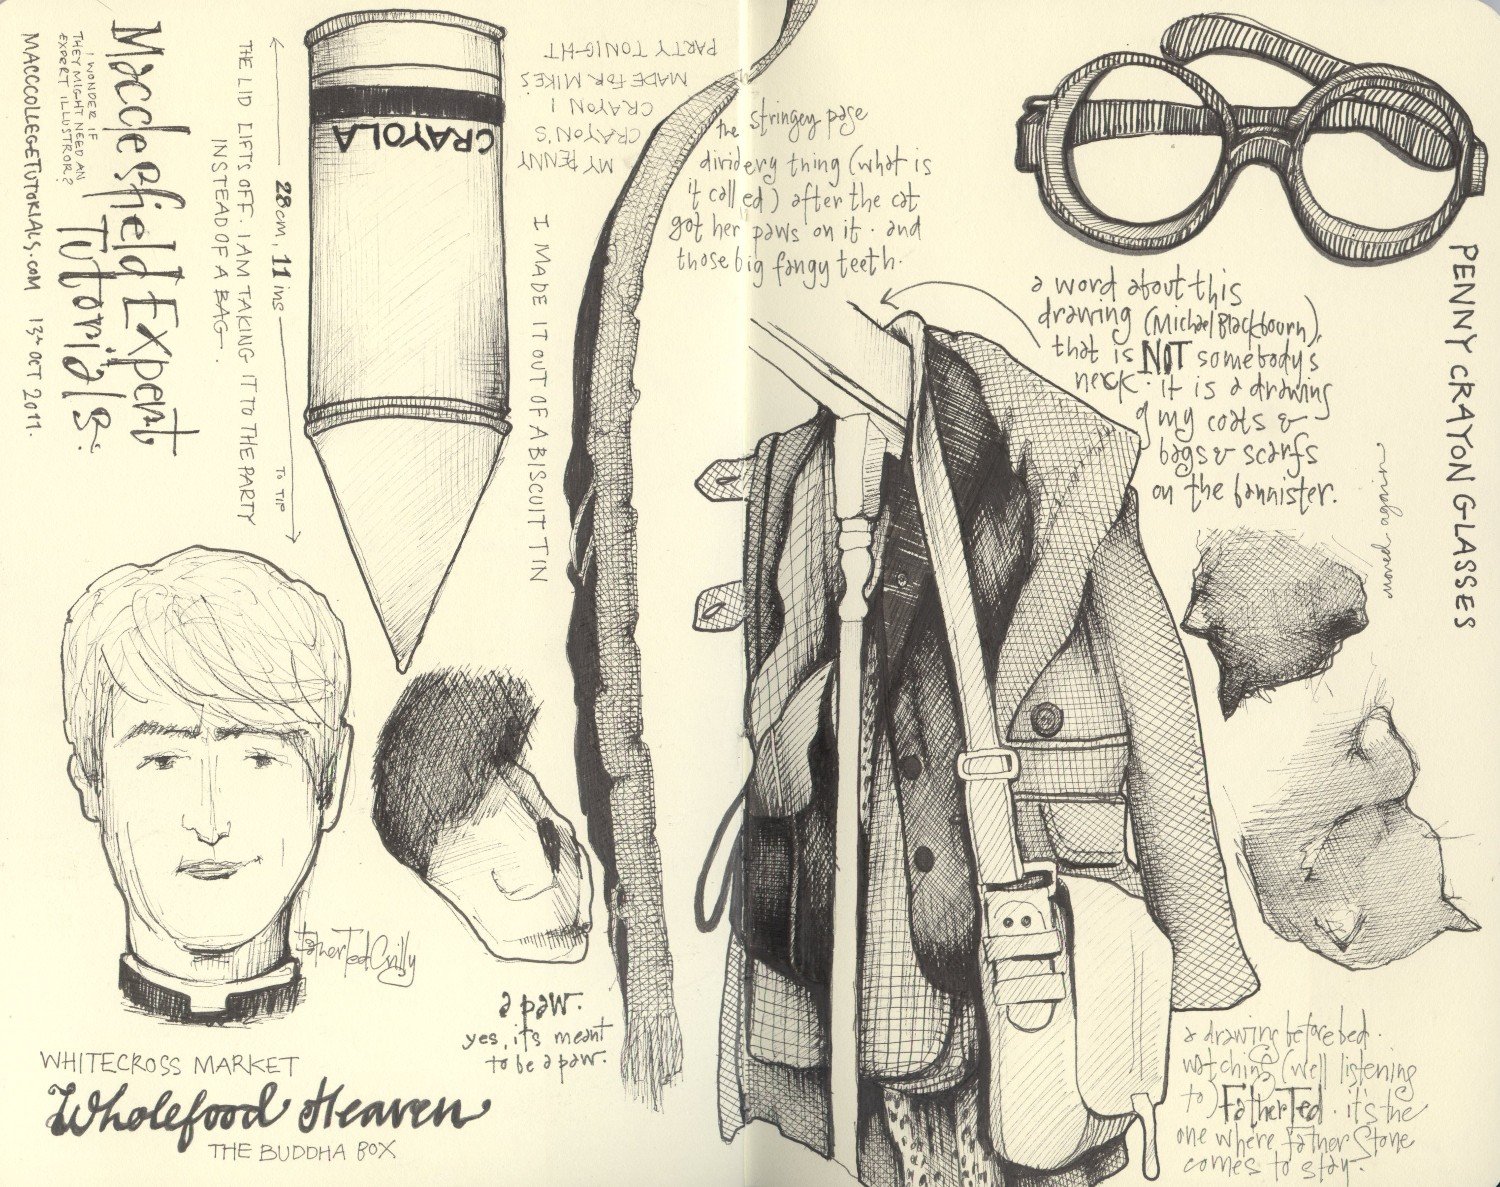 Macclesfield Expert
Tutorials.
I WONDER IF
THEY MIGHT NEED AN
EXPERT ILLUSTROR?
MACCCOLLEGETUTORIALS.COM 13th OCT 2011.
THE LID LIFTS OFF. I AM TAKING IT TO THE PARTY
INSTEAD OF A BAG.
28cm, 11 ins
TO TIP
CRAYOLA
MY PENNY
CRAYON'S
CRAYON I
MADE FOR MIKES'
PARTY TONIGHT
I MADE IT OUT OF A BISCUIT TIN
the stringey page
dividery thing (what is
it called) after the cat
got her paws on it. and
those big fangy teeth.
PENNY CRAYON GLASSES
a word about this
drawing (Michael Blackbourn),
that is NOT somebody's
neck. it is a drawing
of my coats &
bags & scarfs
on the bannister.
moved. again
Father Ted Crilly
a paw.
yes, it's meant
to be a paw.
WHITECROSS MARKET
Wholefood Heaven
THE BUDDHA BOX
a drawing before bed.
watching (well listening
to) Father Ted. it's the
one where father Stone
comes to stay.